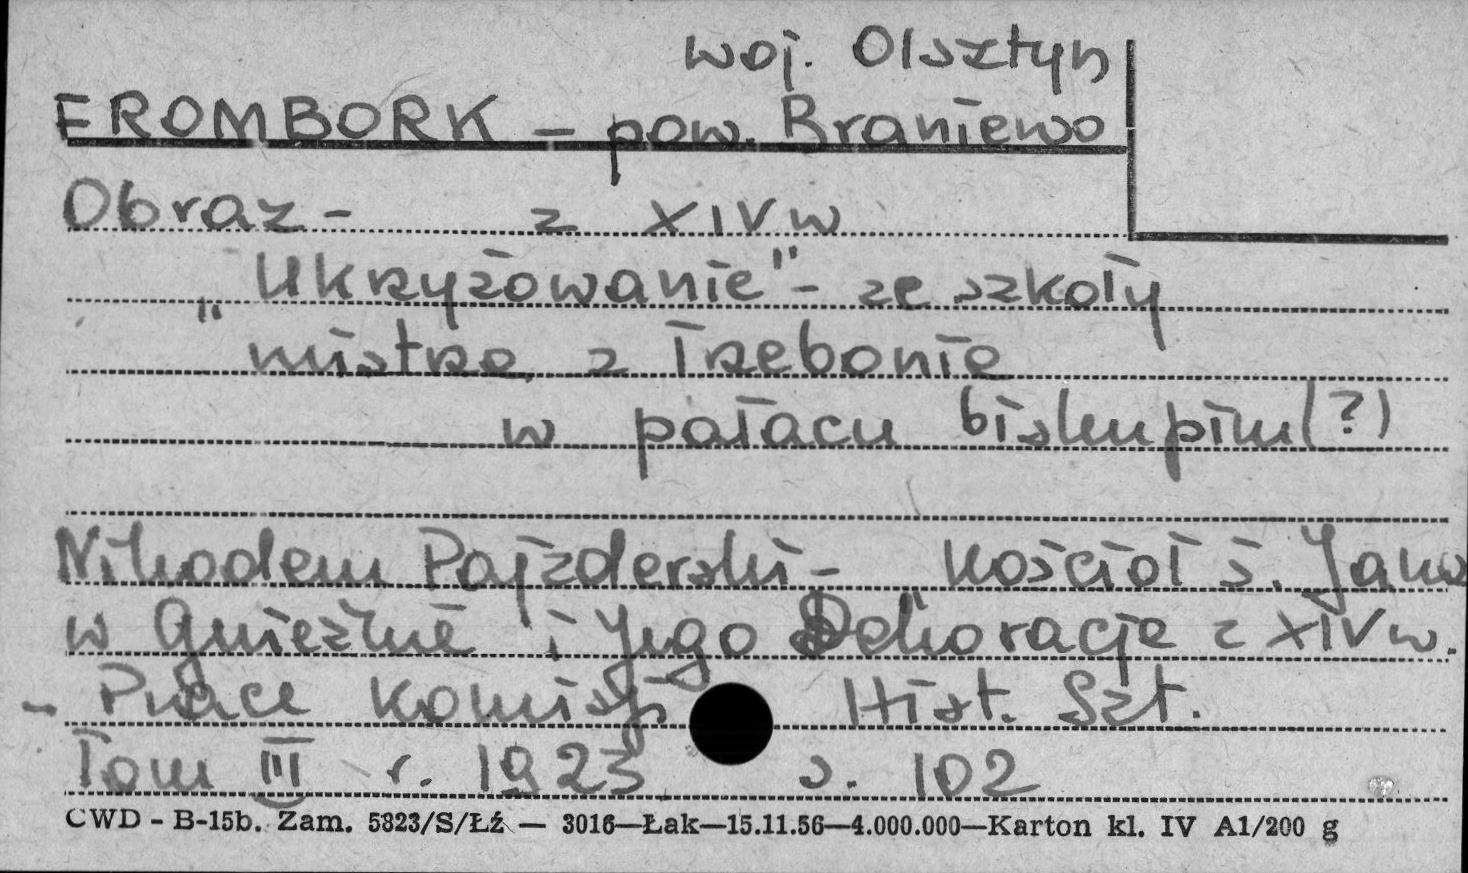 woj. Olsztyn
FROMBORK – pow. Braniewo
Obraz – z XIV w
„Ukrzyżowanie" – ze szkoły
mistrza z Trzebonie
w pałacu biskupim (?)
Nikodem Pajzderski – Kościół ś. Jana
w Gnieźnie i jego Dekoracje z XIV w.
– Prace Komisji Hist. Szt.
Tom III r. 1923 s. 102
CWD - B-15b. Zam. 5823/S/Łź — 3016—Łak—15.11.56—4.000.000—Karton kl. IV A1/200 g